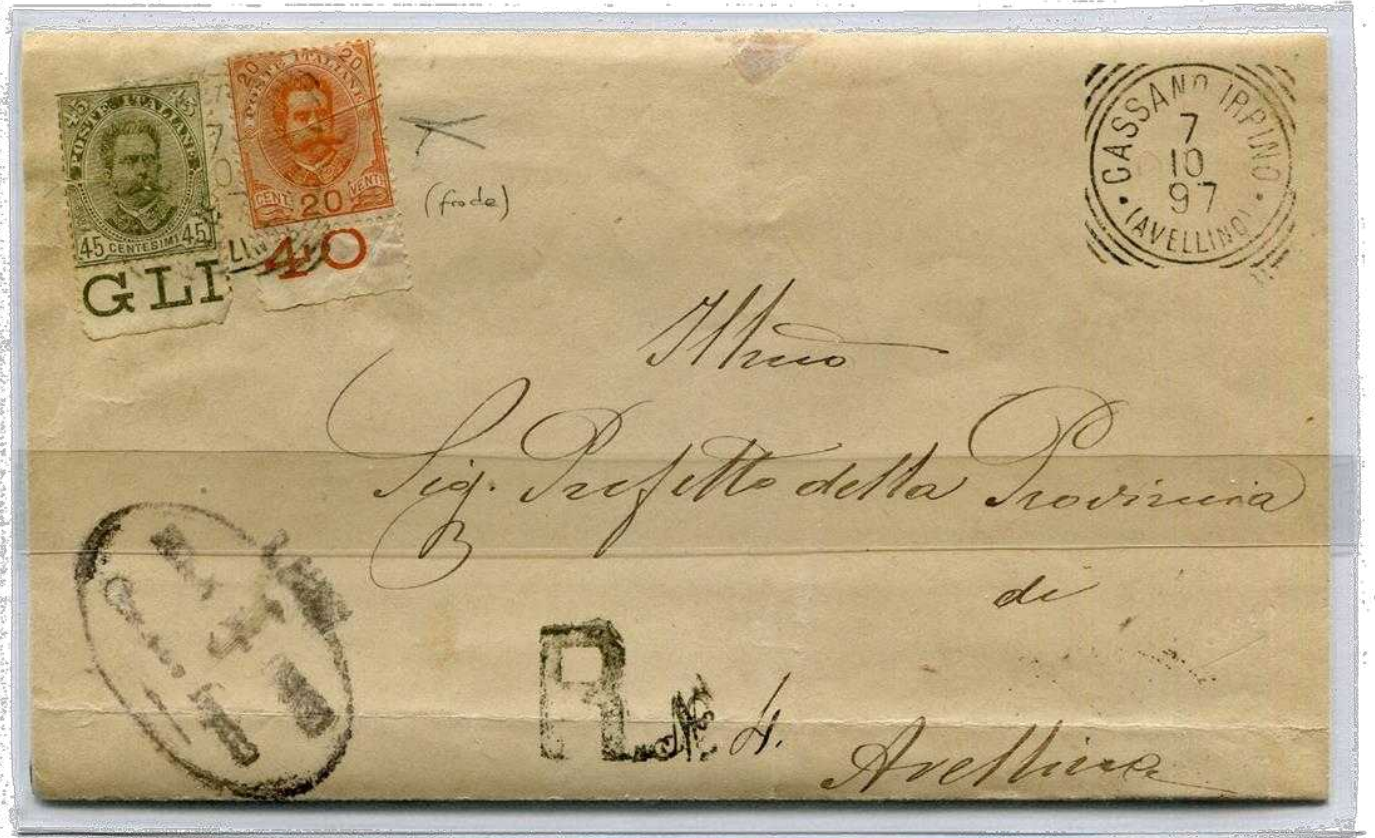 45 45
POSTE ITALIANE
45 CENTESIMI 45
GLI
20 20
POSTE ITALIANE
CENT. 20 VENTI
40
(frode)
CASSANO IRPINO
7
10
97
(AVELLINO)
Illmo
Sig. Prefetto della Provincia
di
Avellino
R. No 4.